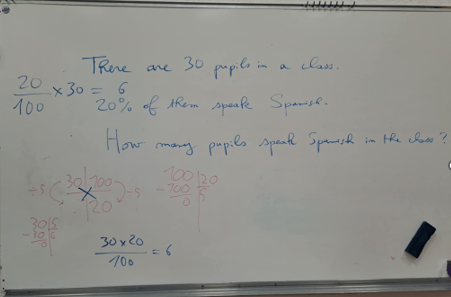 There are 30 pupils in a class.
20/100 × 30 = 6
20% of them speak Spanish.
How many pupils speak Spanish in the class?
÷5 30 | 100 ÷5
20
100 | 20
- 100 | 5
0
30 | 5
- 30 | 6
0
30 × 20 / 100 = 6